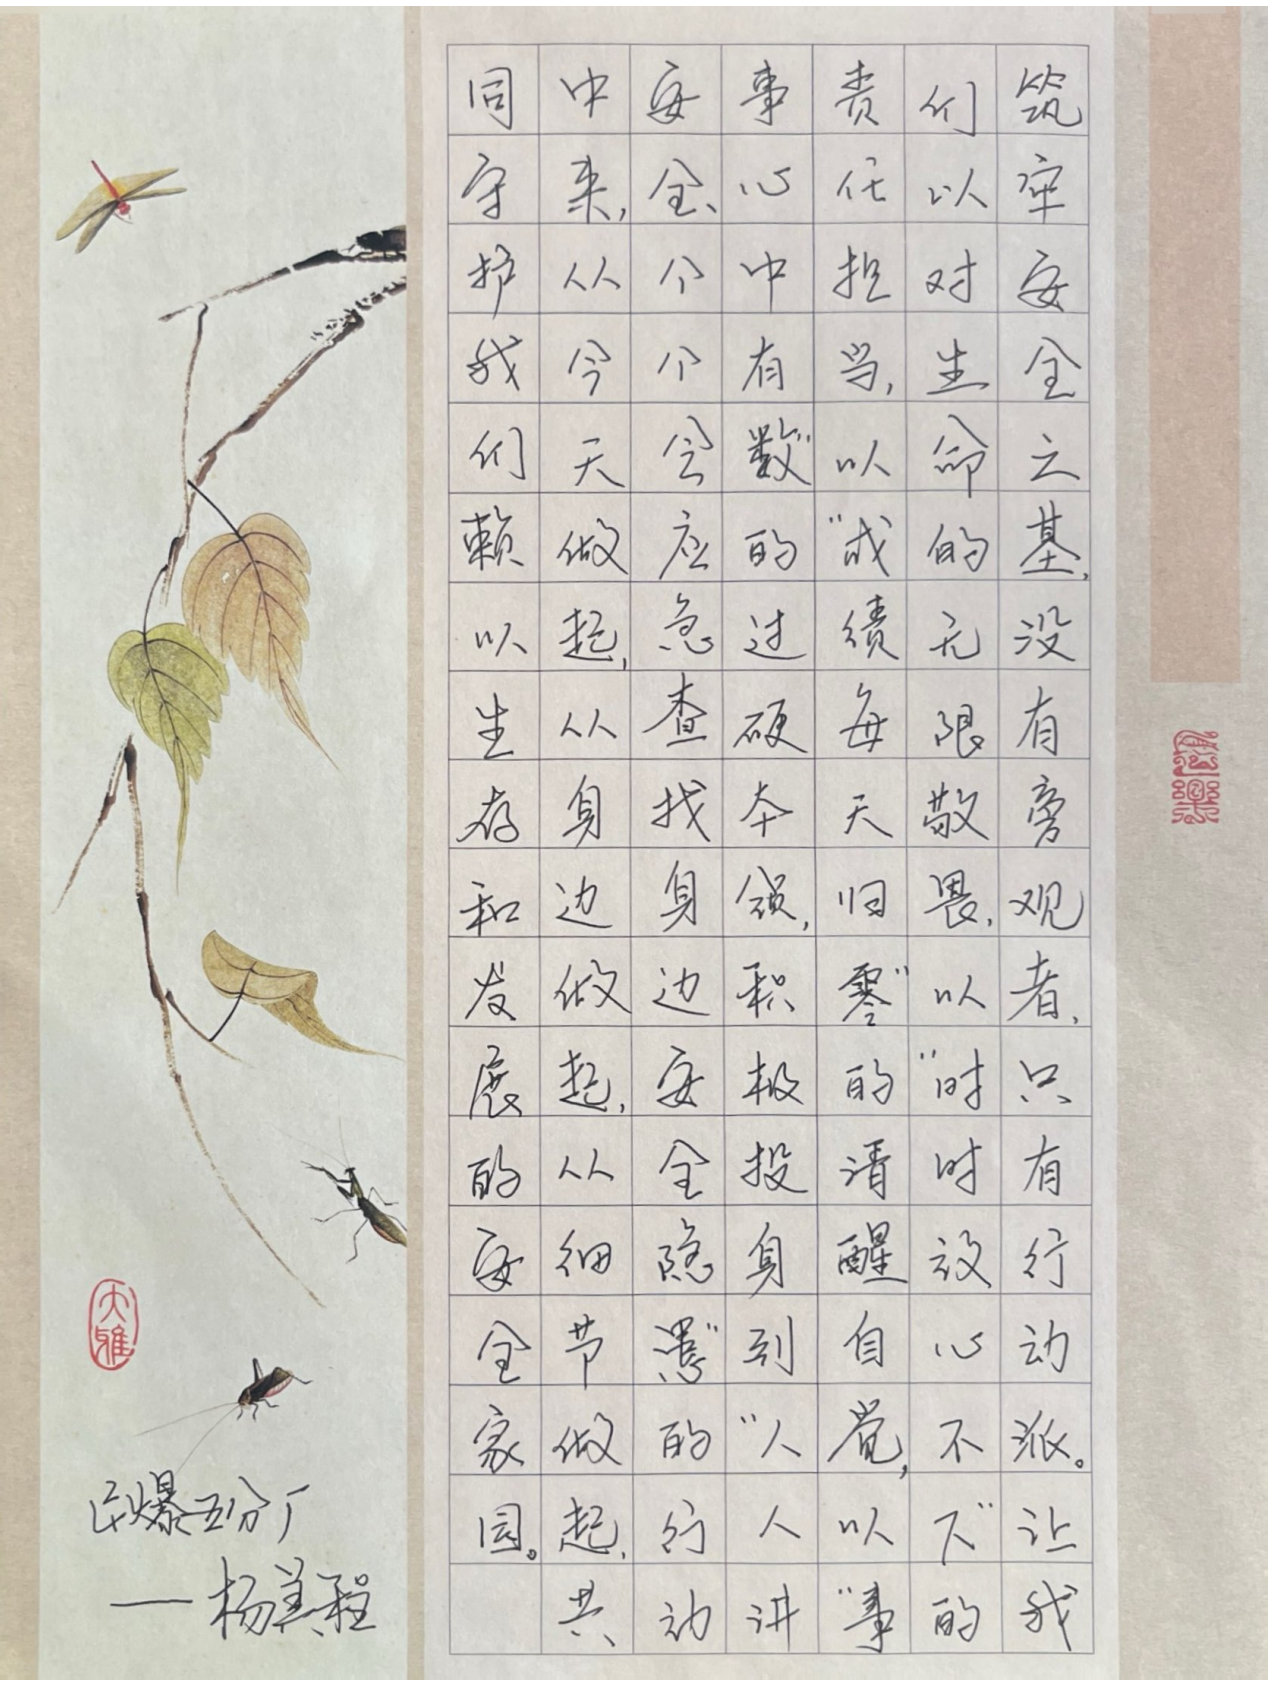 筑牢安全之基,没有旁观者,只有行动派。让我
们以对生命的无限敬畏,以"时时放心不下"的
责任担当,以"成绩每天归零"的清醒自觉,以"事
事心中有数"的过硬本领,积极投身到"人人讲
安全、个个会应急查找身边安全隐患"的行动
中来,从今天做起,从身边做起,从细节做起,共
同守护我们赖以生存和发展的安全家园。
民爆五分厂
——杨美程
大雅